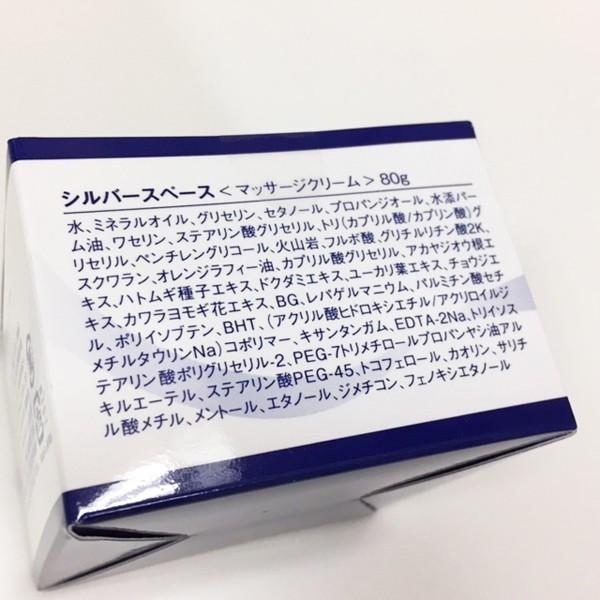 シルバースペース<マッサージクリーム>80g
水、ミネラルオイル、グリセリン、セタノール、プロパンジオール、水添パー
ム油、ワセリン、ステアリン酸グリセリル、トリ(カプリル酸/カプリン酸)グ
リセリル、ペンチレングリコール、火山岩、フルボ酸、グリチルリチン酸2K、
スクワラン、オレンジラフィー油、カプリル酸グリセリル、アカヤジオウ根エ
キス、ハトムギ種子エキス、ドクダミエキス、ユーカリ葉エキス、チョウジエ
キス、カワラヨモギ花エキス、BG、レパゲルマニウム、パルミチン酸セチ
ル、ポリイソブテン、BHT、(アクリル酸ヒドロキシエチル/アクリロイルジ
メチルタウリンNa)コポリマー、キサンタンガム、EDTA-2Na、トリイソス
テアリン酸ポリグリセリル-2、PEG-7トリメチロールプロパンヤシ油アル
キルエーテル、ステアリン酸PEG-45、トコフェロール、カオリン、サリチ
ル酸メチル、メントール、エタノール、ジメチコン、フェノキシエタノール